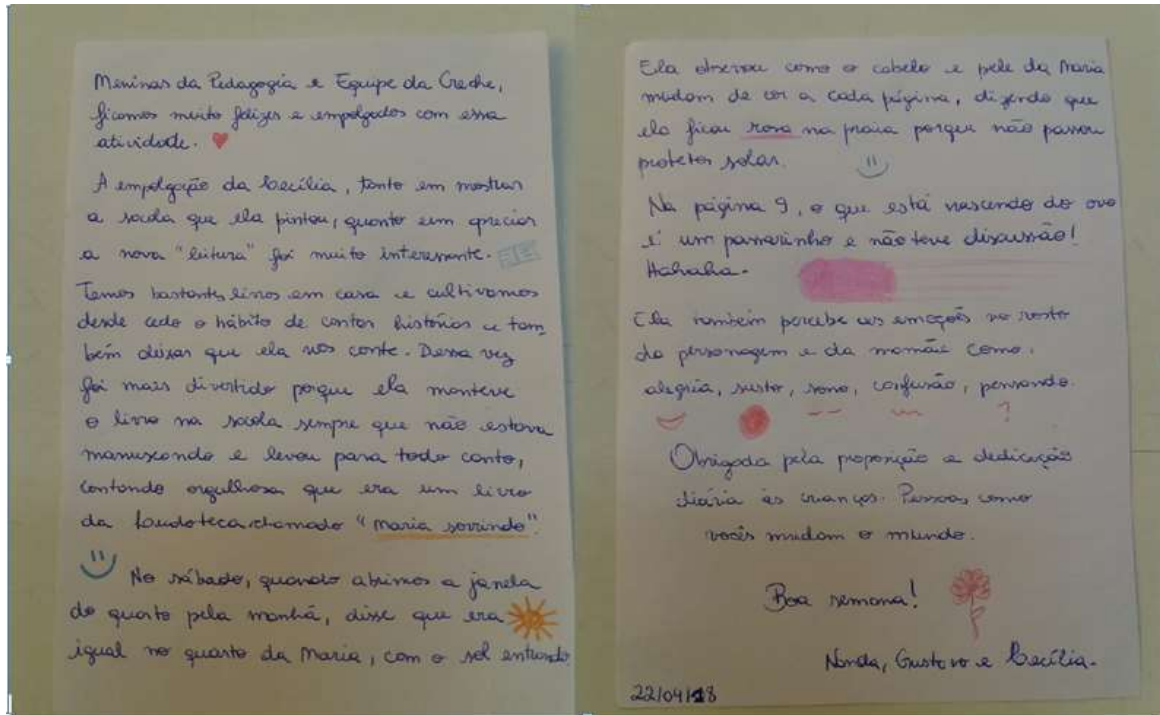 Meninas da Pedagogia e Equipe da Creche,
ficamos muito felizes e empolgados com essa
atividade.
A empolgação da Cecília, tanto em mostrar
a sacola que ela pintou, quanto em apreciar
a nova "leitura" foi muito interessante.
Temos bastantes livros em casa e cultivamos
desde cedo o hábito de contar histórias e tam
bém deixar que ela nos conte. Dessa vez
foi mais divertido porque ela manteve
o livro na sacola sempre que não estava
manuseando e levou para todo canto,
contando orgulhosa que era um livro
da chamado "Maria sorrindo".
No sábado, quando abrimos a janela
do quarto pela manhã, disse que era
igual no quarto da Maria, com o sol entrando
Ela observou como o cabelo e pele da Maria
mudam de cor a cada página, dizendo que
ela ficou rosa na praia porque não passou
protetor solar.
Na página 9, o que está nascendo do ovo
é um passarinho e não teve discussão!
Hahaha.
Ela também percebe as emoções no rosto
da personagem e da mamãe como:
alegria, susto, sono, confusão, pensando.
?
Obrigada pela proposição e dedicação
diária às crianças. Pessoas como
vocês mudam o mundo.
Boa semana!
Nanda, Gustavo e Cecília.
22/04/18